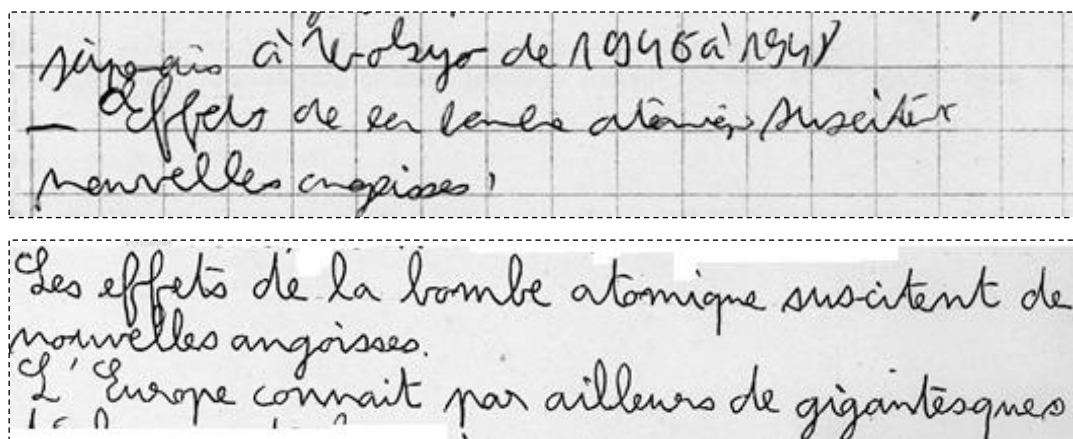 à Tokyo de 1946 à 1948
— Effets de la bombe atomiq susciter
nouvelles angoisses
Les effets de la bombe atomique suscitent de
nouvelles angoisses.
L'Europe connait par ailleurs de gigantesques